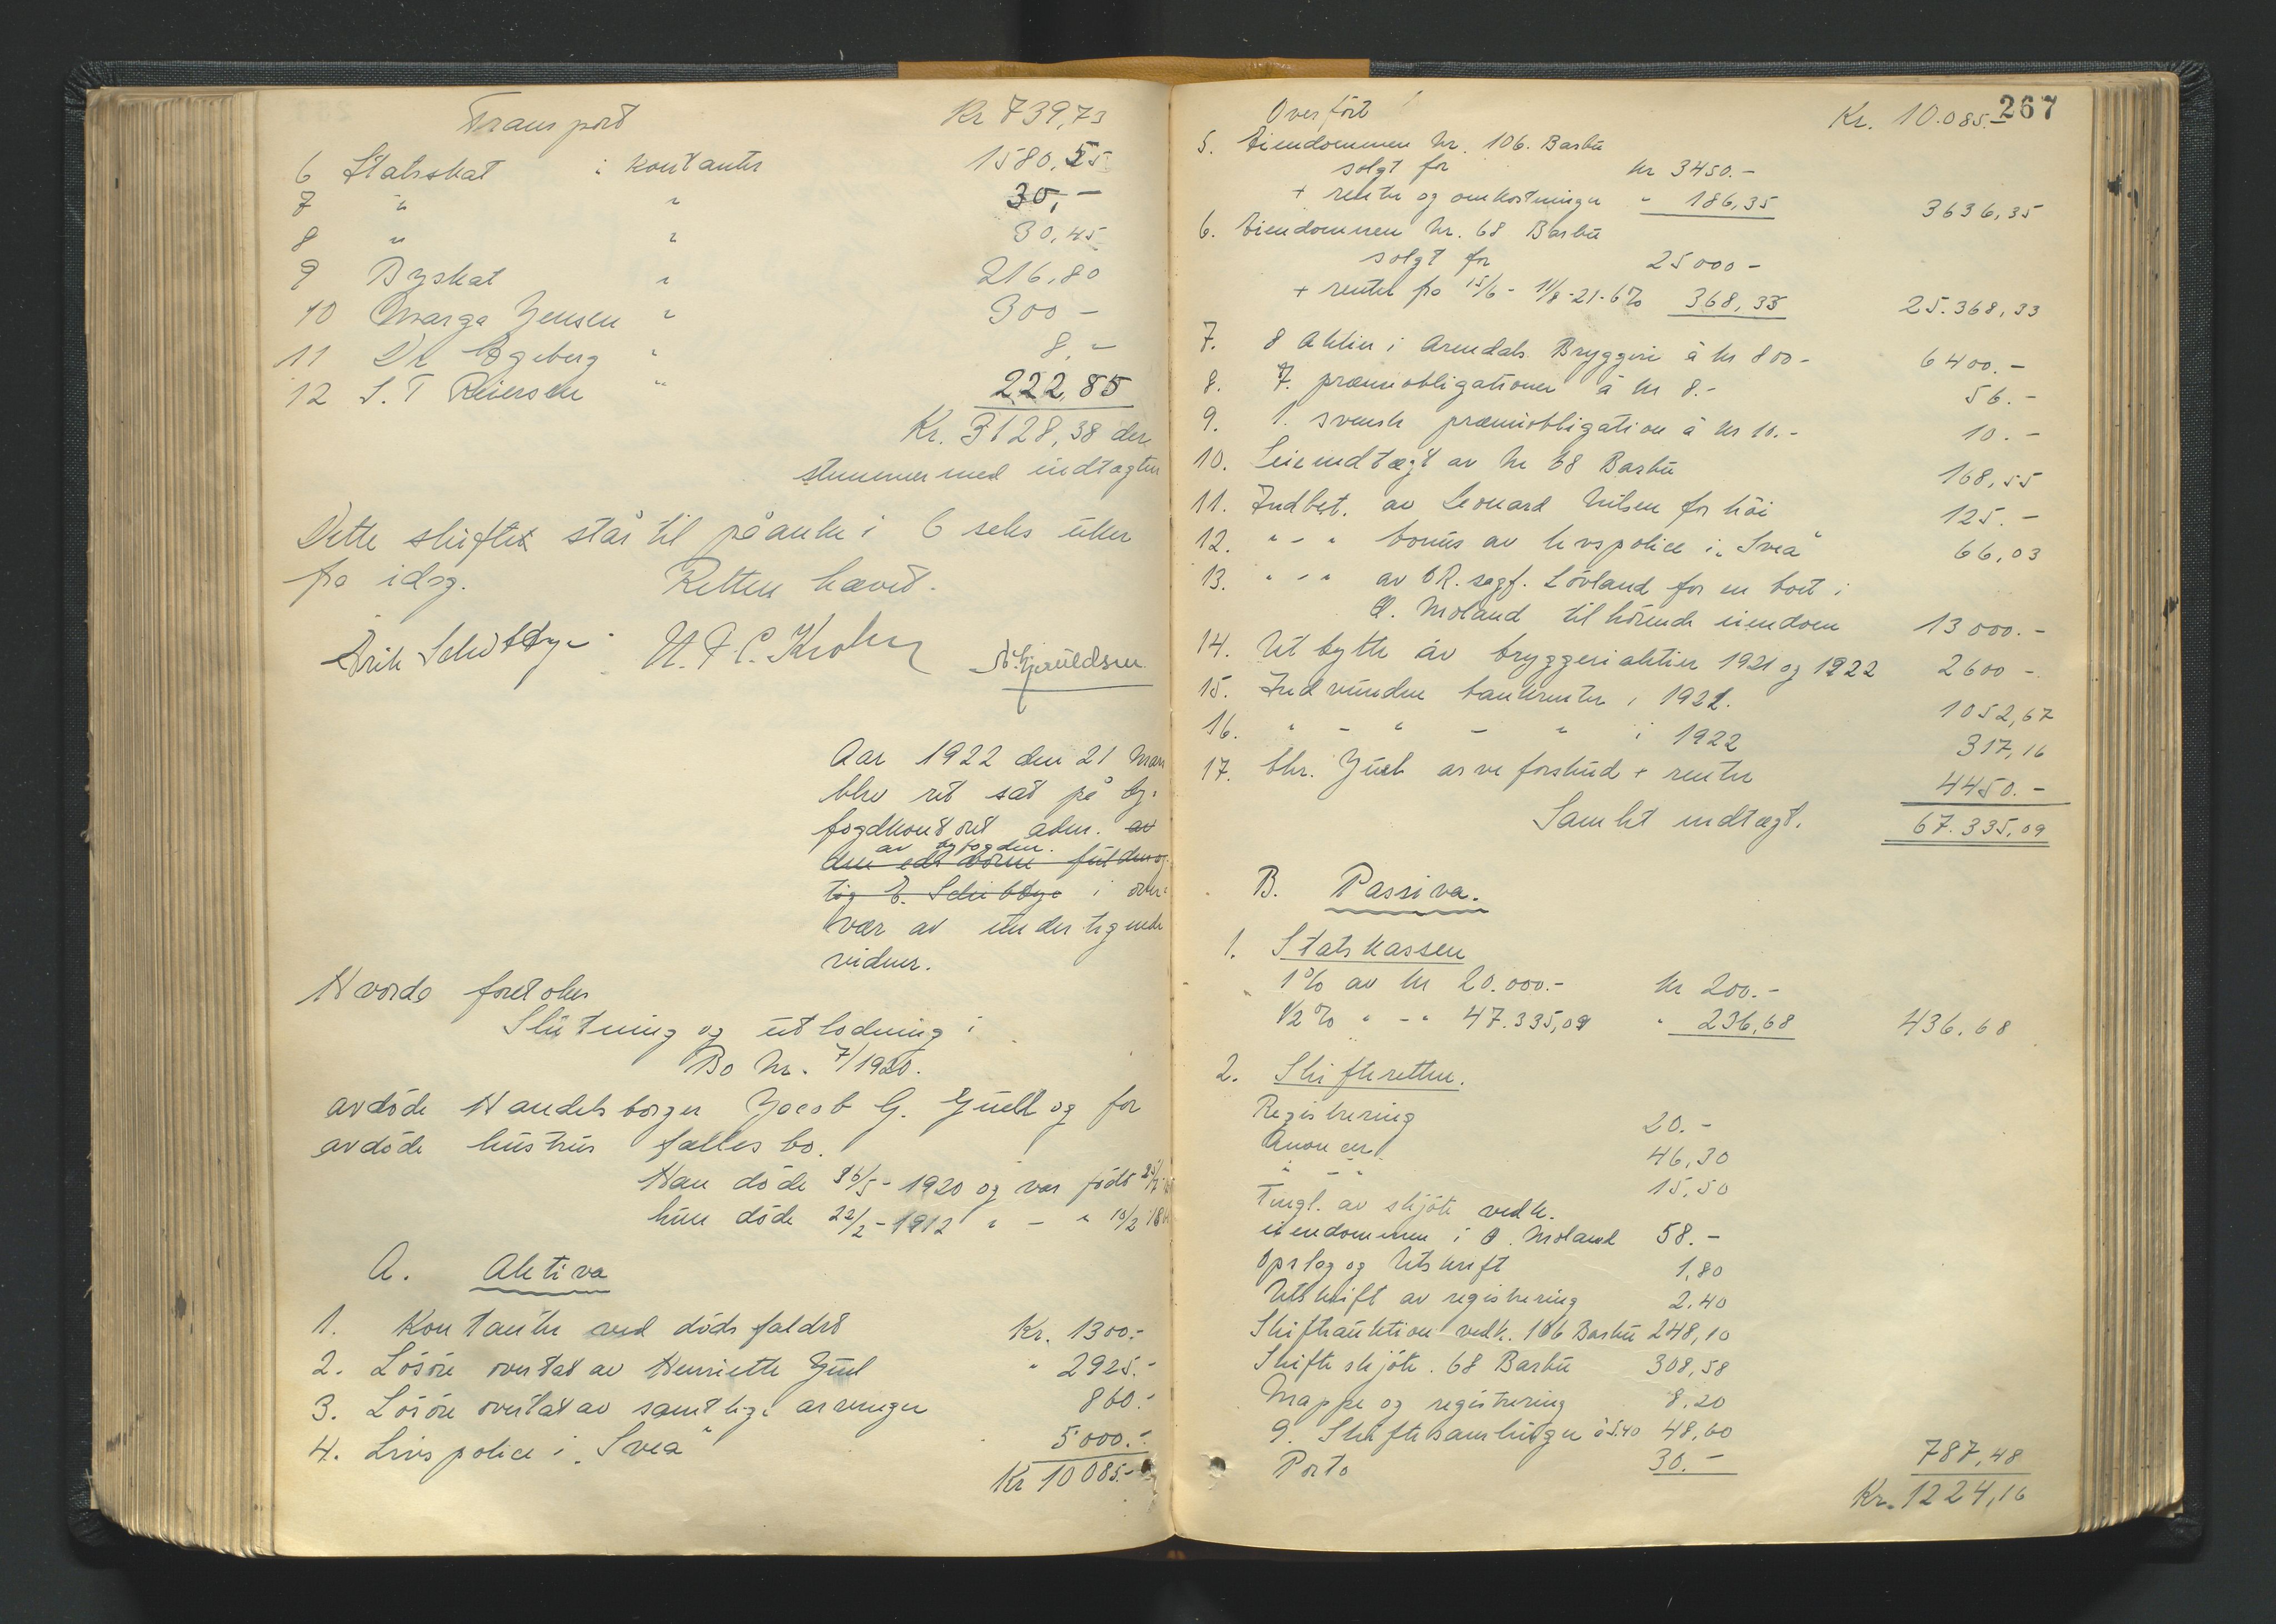 Transport Kr 739,73
6 Statsskat i kontanter 1580,55
7 " " 30,-
8 " " 30,45
9 Byskat " 216,80
10 Marga Jensen " 300 -
11 Dr Egeberg " 8,-
12 S. T Reiersen " 222,85
Kr. 3128,38 der
stemmer med indtægten
Dette skiftet står til påanke i 6 seks uker
fra idag. Retten hævet.
Erik Schübbye H. F. C. Krohn
Aar 1922 den 21 Mars
blev ret sat på by-
fogdkontoret adm. av
av byfogden.
den edsvorne fuldmæg-
tig E. Schübbye i over-
vær av undertegnede
vidner.
Hvorda foretokes
Slutning og utlodning i
Bo Nr. 7/1920.
avdöde Handelsborger Jacob G. Juell og for
avdöde hustrus fælles bo.
Han döde 26/5 - 1920 og var födt
hun döde 22/2 - 1912 " - "
A. Aktiva
1. Kontanter ved dödsfaldet Kr. 1300.-
2. Lösöre overtat av Henriette Juel " 2925.-
3. Lösöre overtat av samtlige arvinger 860.-
4. Livspolice i "Svea" 5000.-
Kr 10085.-
267
Overfört Kr. 10.085.-
5. Eiendommen Nr. 106. Barbu
solgt for kr 3450.-
+ renter og omkostninger " 186,35 3636,35
6. Eiendommen Nr. 68 Barbu
solgt for 25000 -
+ renter fra 15/6 - 11/9 -21 - 6% 368,33 25.368,33
7. 8 Aktier i Arendals Bryggeri à kr 800 - 6400.-
8. 7. præmieobligationer à kr 8.- 56.-
9. 1. svensk præmieobligation à kr 10.- 10.-
10. Leieindtægt av Nr 68 Barbu 168,55
11. Indbet. av Leonard Nilsen for höi 125.-
12. " - " bonus av livspolice i "Svea" 66,03
13. " - " av OR. sagf. Lövland for en bort i
Ö. Moland tilhörende eiendom 13000.-
14. Utbytte av bryggeriaktier 1921 og 1922 2600 -
15. Indvundne bankrenter i 1921. 1052,67
16. " - " - " i 1922 317,16
17. Chr. Juel arveforskud + renter 4450.-
Samlet indtægt. 67.335,09
B. Passiva.
1. Statskassen
1% av kr 20.000.- kr 200.-
1/2 % " - " 47.335,09 " 236,68 436,68
2. Skifteretten.
Registrering 20.-
Anoncer 46,30
" - " 15,50
Tingl. av skjöte vedk.
eiendommen i Ö. Moland 58.-
Oprlag og Utskrift 1,80
Utskrift av registrering 2,40
Skifteauktion vedk. 106 Barbu 248,10
Skifte skjöte. 68 Barbu 308,58
Mappe og registrering 8,20
9. Skiftesamlinger à 5.40 48,60
Porto 30.- 787,48
Kr. 1224,16